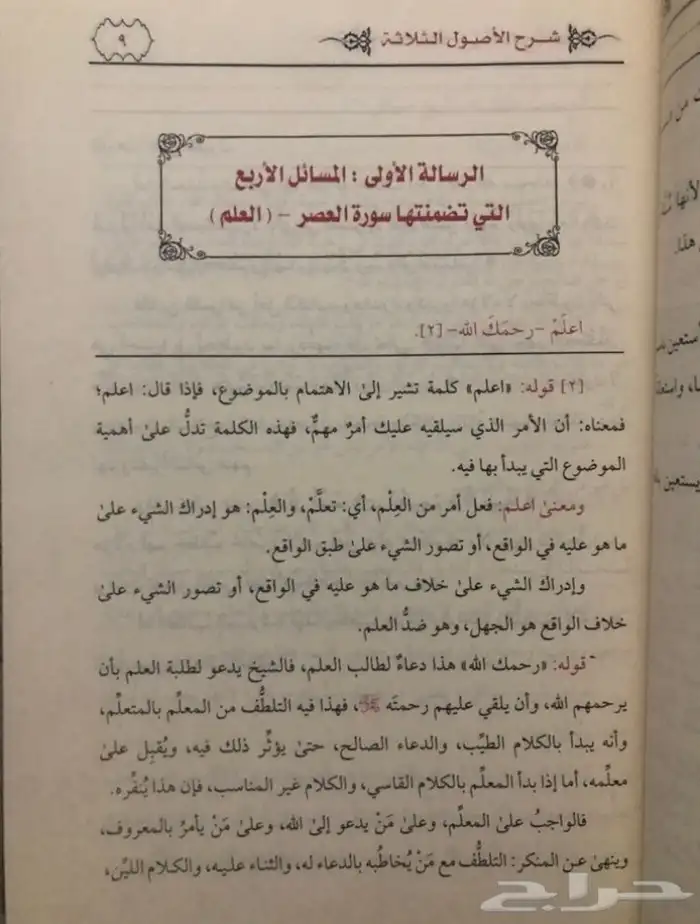 شرح الأصول الثلاثة
٩
الرسالة الأولى : المسائل الأربع
التي تضمنتها سورة العصر – ( العلم )
اعلَمْ –رحمَكَ الله– [٢].
[٢] قوله: «اعلم» كلمة تشير إلىٰ الاهتمام بالموضوع، فإذا قال: اعلم؛
فمعناه: أن الأمر الذي سيلقيه عليك أمرٌ مهمٌّ، فهذه الكلمة تدلُّ علىٰ أهمية
الموضوع التي يبدأ بها فيه.
ومعنىٰ اعلم: فعل أمر من العِلْم، أي: تعلَّمْ، والعِلْم: هو إدراك الشيء علىٰ
ما هو عليه في الواقع، أو تصور الشيء علىٰ طبق الواقع.
وإدراك الشيء علىٰ خلاف ما هو عليه في الواقع، أو تصور الشيء علىٰ
خلاف الواقع هو الجهل، وهو ضدُّ العلم.
قوله: «رحمك الله» هذا دعاءٌ لطالب العلم، فالشيخ يدعو لطلبة العلم بأن
يرحمهم الله، وأن يلقي عليهم رحمتَه، فهذا فيه التلطُّف من المعلِّم بالمتعلِّم،
وأنه يبدأ بالكلام الطيِّب، والدعاء الصالح، حتىٰ يؤثِّر ذلك فيه، ويُقبِل علىٰ
معلِّمه، أما إذا بدأ المعلِّم بالكلام القاسي، والكلام غير المناسب، فإن هذا يُنفِّره.
فالواجبُ علىٰ المعلِّم، وعلىٰ مَنْ يدعو إلىٰ الله، وعلىٰ مَنْ يأمرُ بالمعروف،
وينهىٰ عن المنكر: التلطُّف مع مَنْ يُخاطبه بالدعاء له، والثناء عليه، والكلام الليِّن،
حراج